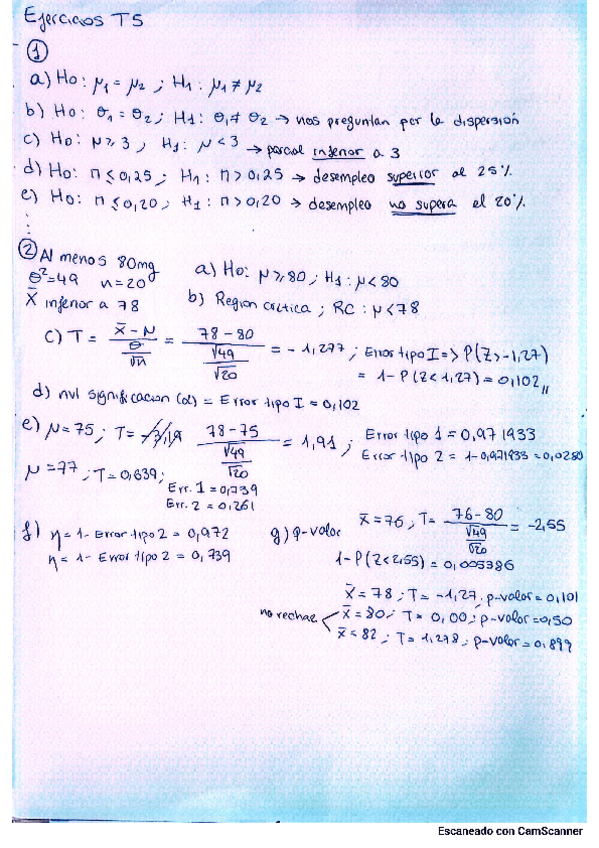 Ejercicios T5
①
a) Ho: μ₁ = μ₂ ; H₁: μ₁ ≠ μ₂
b) Ho: θ₁ = θ₂ ; H₁: θ₁ ≠ θ₂ → nos preguntan por la dispersión
c) Ho: μ ≥ 3 , H₁: μ < 3 → parcial inferior a 3
d) Ho: π ≤ 0,25 ; H₁: π > 0,25 → desempleo superior al 25%
e) Ho: π ≤ 0,20 ; H₁: π > 0,20 → desempleo no supera el 20%
② Al menos 80mg
θ² = 49 n = 20
X̄ inferior a 78
a) Ho: μ ≥ 80 ; H₁: μ < 80
b) Region critica ; RC: μ < 78
c) T = (X̄ - μ)/(θ/√n) = (78 - 80)/(√49/√20) = -1,277 ; Error tipo I => P(Z > -1,27)
= 1 - P(Z < 1,27) = 0,102 //
d) nvl significacion (α) = Error tipo I = 0,102
e) μ = 75 ; T = (78 - 75)/(√49/√20) = 1,91 ; Error tipo 1 = 0,971933
Error tipo 2 = 1 - 0,971933 = 0,0280
μ = 77 ; T = 0,639 ;
Err. 1 = 0,739
Err. 2 = 0,261
f) η = 1 - Error tipo 2 = 0,972
η = 1 - Error tipo 2 = 0,739
g) p-valor X̄ = 76 , T = (76 - 80)/(√49/√20) = -2,55
1 - P(Z < 2,55) = 0,005386
X̄ = 78 ; T = -1,27 , p-valor = 0,101
no rechaz X̄ = 80 ; T = 0,00 ; p-valor = 0,50
X̄ = 82 ; T = 1,278 ; p-valor = 0,899
Escaneado con CamScanner